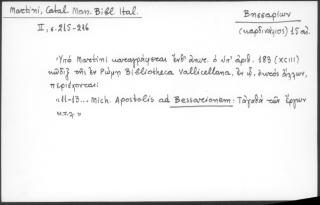 Martini, Catal. Man. Bibl. Ital.
II, σ. 215-216
Βησσαρίων
(καρδινάλιος) 15 αι.
Ὑπὸ Martini καταγράφεται ἐνθ' ἀνωτ. ὁ ὑπ' ἀριθ. 183 (XCIII)
κῶδιξ τῆς ἐν Ρώμῃ Bibliotheca Vallicellana, ἐν ᾧ, ἐκτὸς ἄλλων,
περιέχεται:
«11-13... Mich. Apostolis ad Bessarionem: Τἀγαθὰ τῶν ἔργων
κ.τ.λ.»